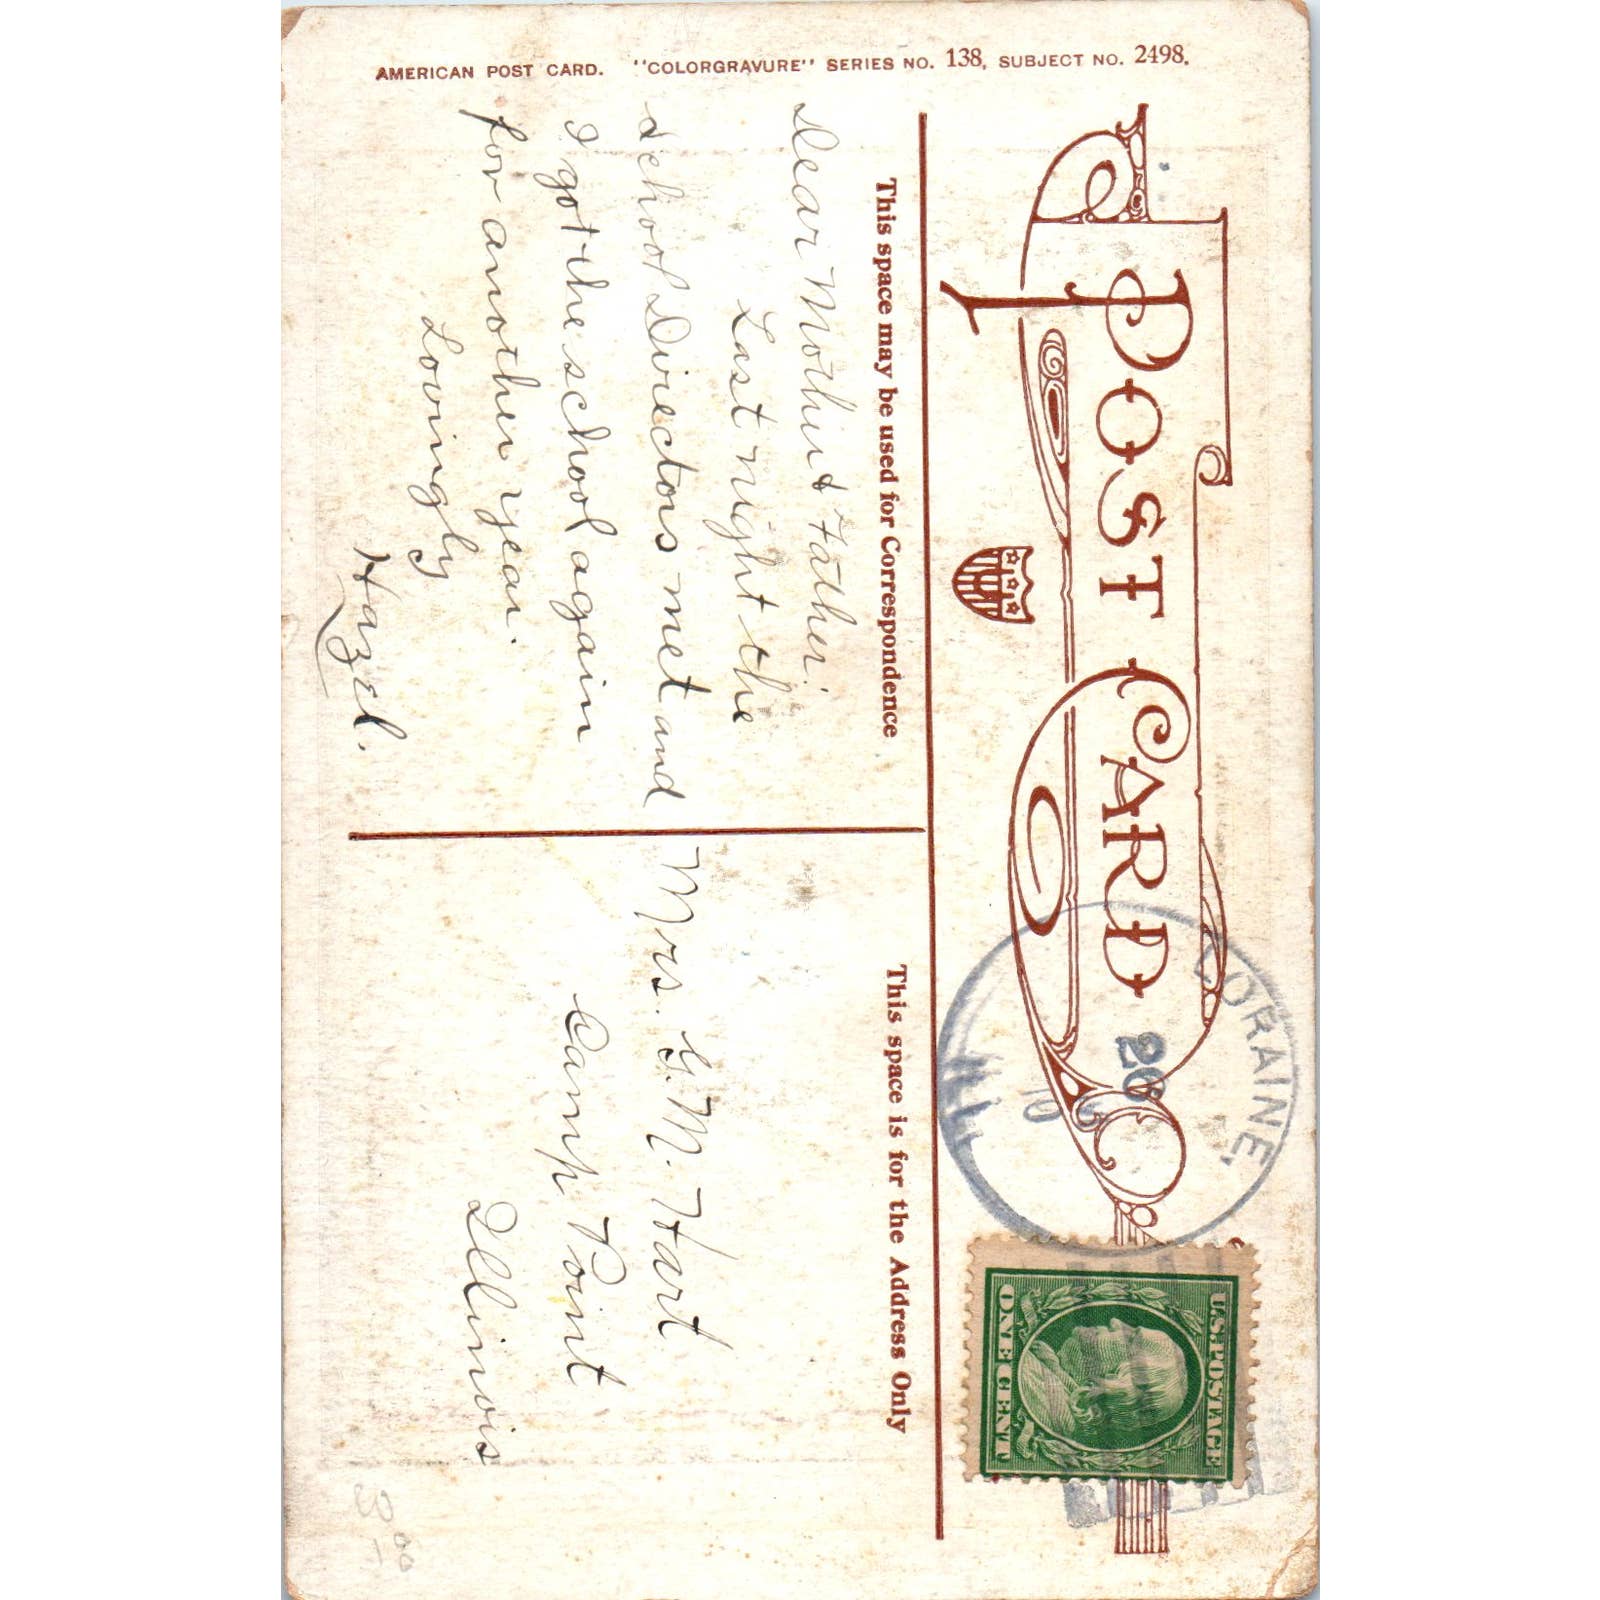 AMERICAN POST CARD. "COLORGRAVURE" SERIES NO. 138, SUBJECT NO. 2498.
POST CARD
LORAINE,
20
10
ILL
U.S. POSTAGE
ONE CENT
This space may be used for Correspondence
Dear Mother & Father:
Last night the
school Directors met and
I got the school again
for another year.
Lovingly
Hazel.
This space is for the Address Only
Mrs. G. M. Hart
Camp Point
Illinois
3 00